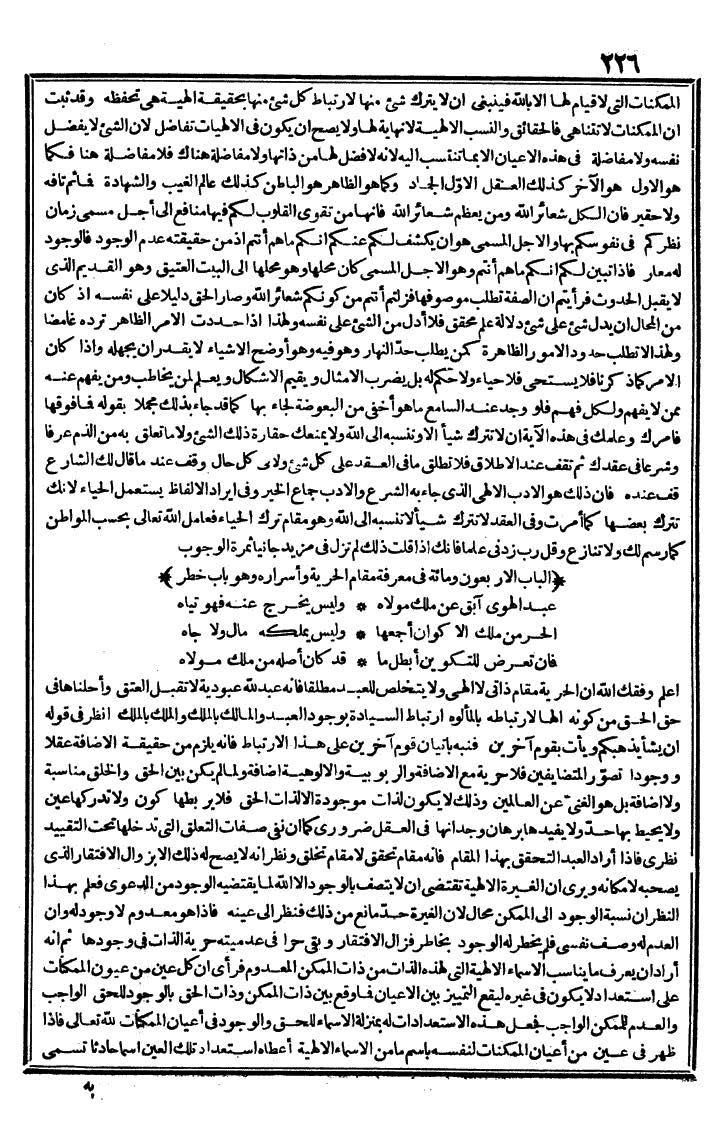 ٢٢٦
الممكنات التى لا قيام لها الا بالله فينبغى ان لا يترك شئ منها لارتباط كل شئ منها بحقيقة الهية هى تحفظه وقد ثبت
ان الممكنات لا تتناهى فالحقائق والنسب الالهية لا نهاية لها ولا يصح ان يكون فى الالهيات تفاضل لان الشئ لا يفضل
نفسه ولا مفاضلة فى هذه الاعيان الا بما تنتسب اليه لانه لا فضل لها من ذاتها ولا مفاضلة هناك فلا مفاضلة هنا فكما
هو الاول هو الآخر كذلك العقل الاول الجماد وكما هو الظاهر هو الباطن كذلك عالم الغيب والشهادة فما ثم تافه
ولا حقير فان الكل شعائر الله ومن يعظم شعائر الله فانها من تقوى القلوب لكم فيها منافع الى أجل مسمى زمان
نظركم فى نفوسكم بها والاجل المسمى هو ان يكشف لكم عنكم انكم ما هم أنتم اذ من حقيقته عدم الوجود فالوجود
له معار فاذا تبين لكم انكم ما هم أنتم وهو الاجل المسمى كان محلها وهو محلها الى البيت العتيق وهو القديم الذى
لا يقبل الحدوث فرأيتم ان الصفة تطلب موصوفها فزلتم أنتم من كونكم شعائر الله وصار الحق دليلا على نفسه اذ كان
من المحال ان يدل شئ على شئ دلالة علم محقق فلا أدل من الشئ على نفسه ولهذا اذا حددت الامر الظاهر ترده غامضا
ولهذا لا تطلب حدود الامور الظاهرة كمن يطلب حد النهار وهو فيه وهو أوضح الاشياء لا يقدر ان يجهله واذا كان
الامر كما ذكرنا فلا يستحى فلا حياء ولا حكم له بل يضرب الامثال ويقيم الاشكال ويعلم لمن يخاطب ومن يفهم عنه
ممن لا يفهم ولكل فهم فلو وجد عند السامع ما هو أخفى من البعوضة لجاء بها كما قد جاء بذلك مجملا بقوله فما فوقها
فأمرك وعلمك فى هذه الآية ان لا تترك شيأ الا وتنسبه الى الله ولا يمنعك حقارة ذلك الشئ ولا ما تعلق به من الذم عرفا
وشرعا فى عقدك ثم تقف عند الاطلاق فلا تطلق ما فى العقد على كل شئ ولا فى كل حال وقف عند ما قال لك الشارع
قف عنده فان ذلك هو الادب الالهى الذى جاء به الشرع والادب جماع الخير وفى ايراد الالفاظ يستعمل الحياء لانك
تترك بعضها كما أمرت وفى العقد لا تترك شيأ لا تنسبه الى الله وهو مقام ترك الحياء فعامل الله تعالى بحسب المواطن
كما رسم لك ولا تنازع وقل رب زدنى علما فانك اذا قلت ذلك لم تزل فى مزيد جانيا ثمرة الوجوب
﴿ الباب الاربعون ومائة فى معرفة مقام الحرية وأسراره وهو باب خطر ﴾
عبد الهوى آبق عن ملك مولاه * وليس يخرج عنه فهو تياه
الحر من ملك الاكوان أجعها * وليس يملكه مال ولا جاه
فان تعرض للتكوين أبطل ما * قد كان أصله من ملك مولاه
اعلم وفقك الله ان الحرية مقام ذاتى لا الهى ولا يتخلص للعبد مطلقا فانه عبد لله عبودية لا تقبل العتق وأحلناها فى
حق الحق من كونه الها لارتباطه بالمألوه ارتباط السيادة بوجود العبد والمالك بالملك والملك بالملك انظر فى قوله
ان يشأ يذهبكم ويأت بقوم آخرين فنبه باتيان قوم آخرين على هذا الارتباط فانه يلزم من حقيقة الاضافة عقلا
ووجودا تصور المتضايفين فلا حرية مع الاضافة والربوبية والالوهية اضافة ولما لم يكن بين الحق والخلق مناسبة
ولا اضافة بل هو الغنى عن العالمين وذلك لا يكون لذات موجودة الا لذات الحق فلا يربطها كون ولا تدركها عين
ولا يحيط بها حد ولا يفيدها برهان وجدانها فى العقل ضرورى كما ان نفى صفات التعلق التى تدخلها تحت التقييد
نظرى فاذا أراد العبد التحقق بهذا المقام فانه مقام تحقق لا مقام تخلق ونظر انه لا يصح له ذلك الا بزوال الافتقار الذى
يصحبه لامكانه ويرى ان الغيرة الالهية تقتضى ان لا يتصف بالوجود الا الله لما يقتضيه الوجود من الدعوى فعلم بهذا
النظر ان نسبة الوجود الى الممكن محال لان الغيرة حد مانع من ذلك فنظر الى عينه فاذا هو معدوم لا وجود له وان
العدم له وصف نفسى فلم يخطر له الوجود بخاطر فزال الافتقار وبقى حرا فى عدميته حرية الذات فى وجودها ثم انه
أراد ان يعرف ما يناسب الاسماء الالهية التى لهذه الذات من ذات الممكن المعدوم فرأى ان كل عين من عيون الممكنات
على استعداد لا يكون فى غيره ليقع التمييز بين الاعيان فاوقع بين ذات الممكن وذات الحق بالوجود للحق الواجب
والعدم للممكن الواجب فجعل هذه الاستعدادات له بمنزلة الاسماء للحق والوجود فى أعيان الممكنات لله تعالى فاذا
ظهر فى عين من أعيان الممكنات لنفسه باسم ما من الاسماء الالهية أعطاه استعداد تلك العين اسما حادثا تسمى
به